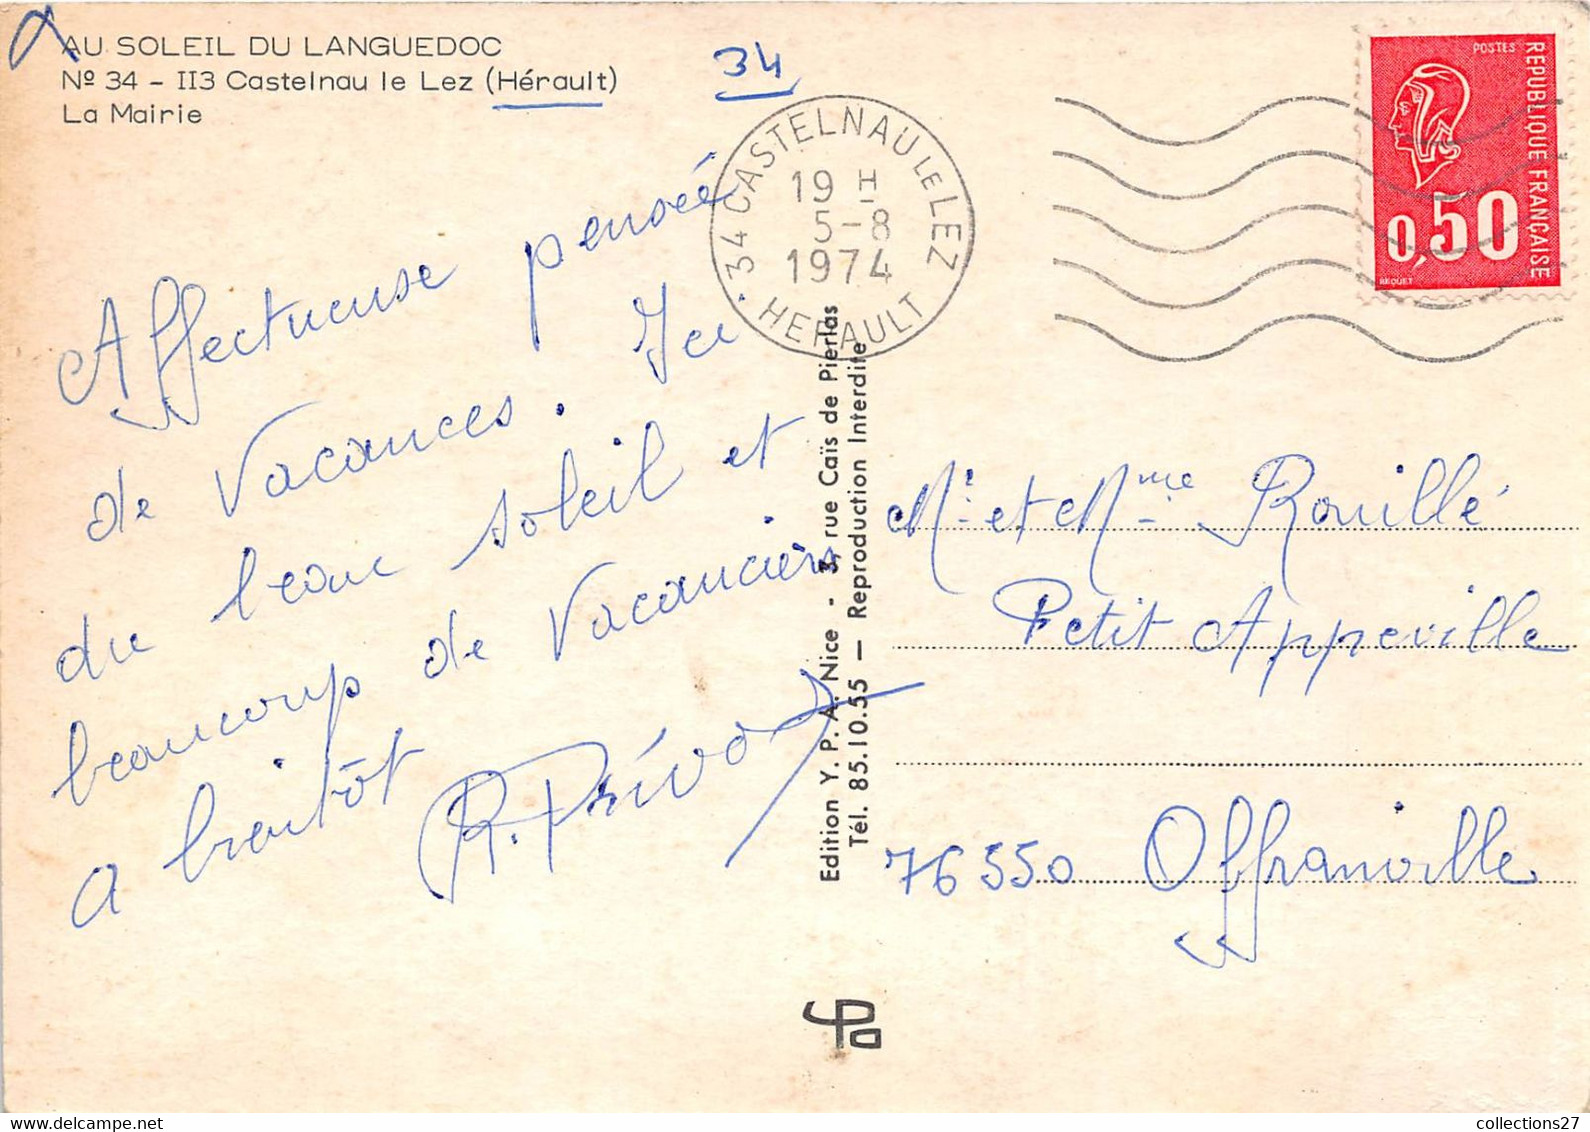 AU SOLEIL DU LANGUEDOC
Nº 34 - II3 Castelnau le Lez (Hérault)
La Mairie
34
34 CASTELNAU LE LEZ
19 H
5-8
1974
HERAULT
POSTES
REPUBLIQUE FRANÇAISE
0,50
BEQUET
Affectueuse pensée
de Vacances. Ici
du beau soleil et
beaucoup de Vacanciers
a bientôt
R. Prévost
Edition Y. P. A. Nice - 3, rue Caïs de Pierlas
Tél. 85.10.55 — Reproduction Interdite
Mr et Mme Rouillé
Petit Appeville
76550 Offranville
collections27